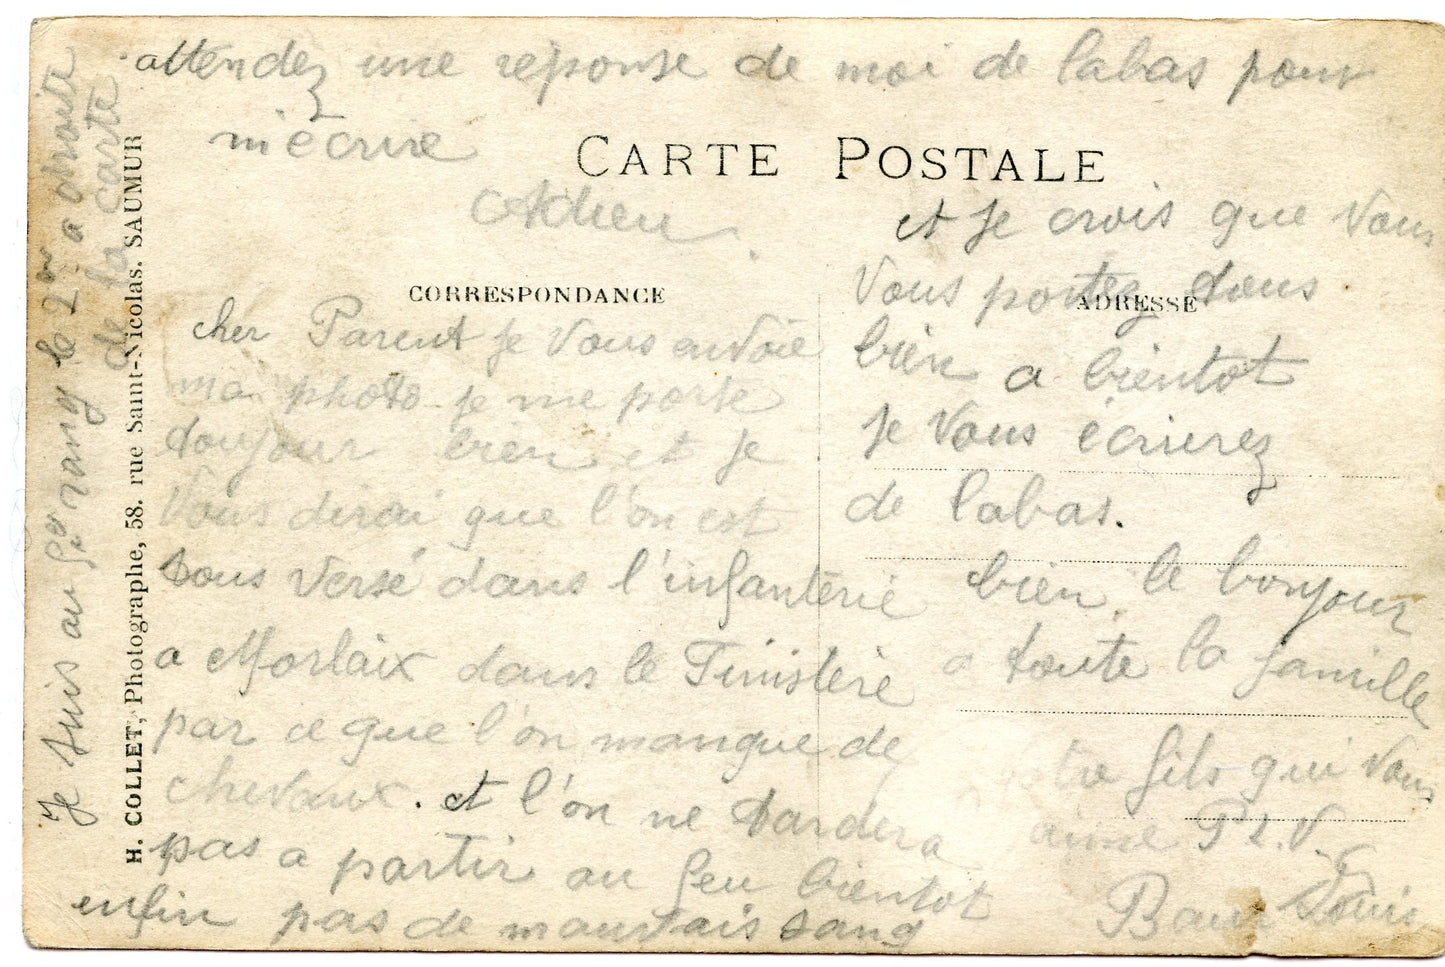 attendez une réponse de moi de labas pour
m'écrire
Adieu
CARTE POSTALE
CORRESPONDANCE
cher Parent je Vous envoie
ma photo je me porte
toujour bien et je
Vous dirai que l'on est
tous versé dans l'infanterie
a Morlaix dans le Finistere
par ce que l'on manque de
chevaux. et l'on ne tardera
pas a partir au feu bientot
enfin pas de mauvais sang
ADRESSE
et je crois que Vous
Vous portez tous
bien a bientot
je Vous écrierez
de labas.
bien le bonjour
a toute la famille
Votre fils qui Vous
aime P.L.V.
Louis
Je suis au rang le 2me a droite
de la carte
H. COLLET, Photographe, 58. rue Saint-Nicolas. SAUMUR